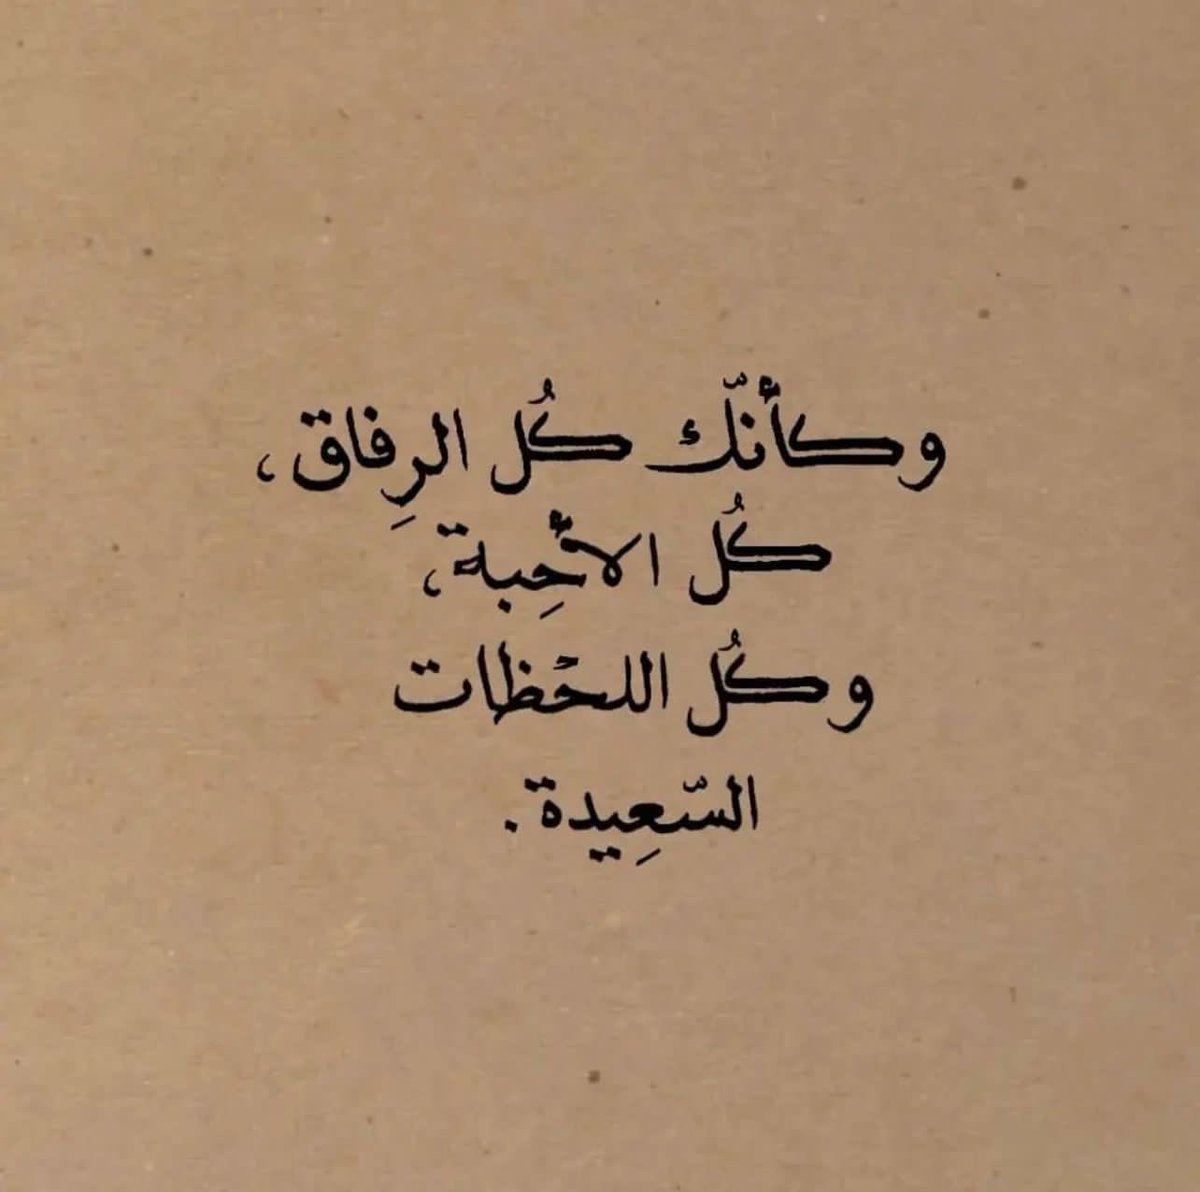 وكأنّك كُل الرِفاق،
كُل الأحِبة،
وكُل اللحْظات
السّعِيدة.